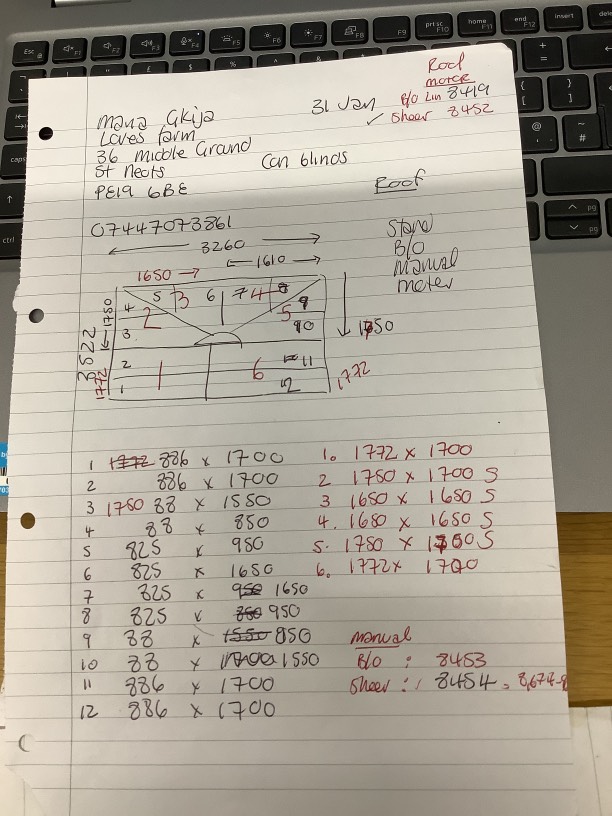 Roof
motor
31 Jan B/O Lin 8419
✓ Sheer 8452
Loves farm
36 middle Ground
St Neots
PE19 6BE
Can blinds
Roof
07447073861
3260
1650 → ← 1610 →
Stand
B/O
Manual
meter
5 3 6 7 4 8
4 2 5 9
3 10
2 11
1 1 6 12
3522
1750
1772
1750
1772
1 1772 886 x 1700
2 886 x 1700
3 1750 88 x 1550
4 88 x 850
5 825 x 950
6 825 x 1650
7 825 x 950 1650
8 825 x 850 950
9 88 x 1550 850
10 88 x 1700 1550
11 886 x 1700
12 886 x 1700
1. 1772 x 1700
2 1750 x 1700 S
3 1650 x 1650 S
4. 1650 x 1650 S
5. 1750 x 1700 S
6. 1772 x 1700
manual
B/O : 8453
Sheer : 8454